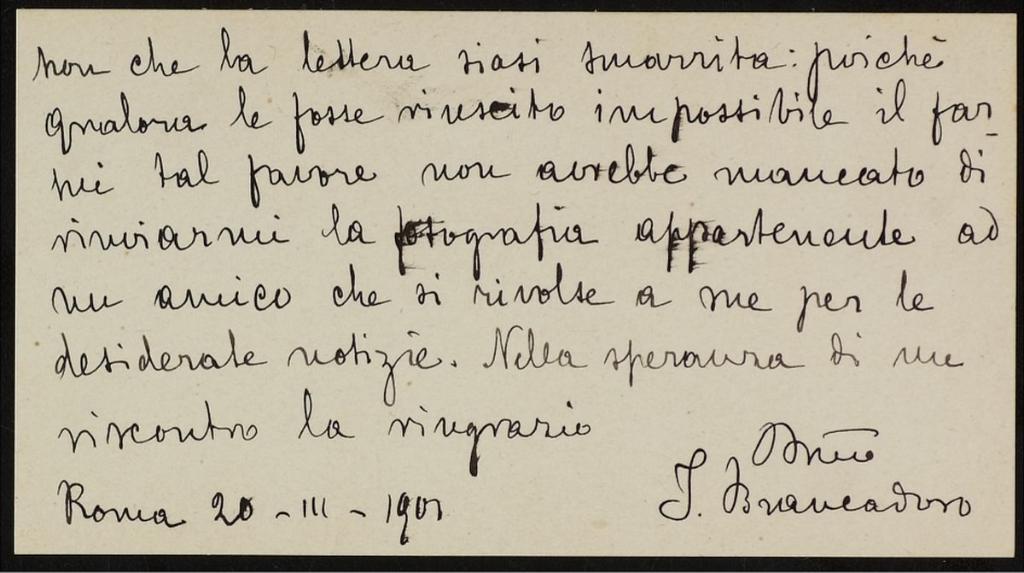 non che la lettera siasi smarrita: poichè
qualora le fosse riuscito impossibile il far-
mi tal favore non avrebbe mancato di
rinviarmi la fotografia appartenente ad
un amico che si rivolse a me per le
desiderate notizie. Nella speranza di un
riscontro la ringrazio
Roma 20 - III - 1901
J. Brancadoro